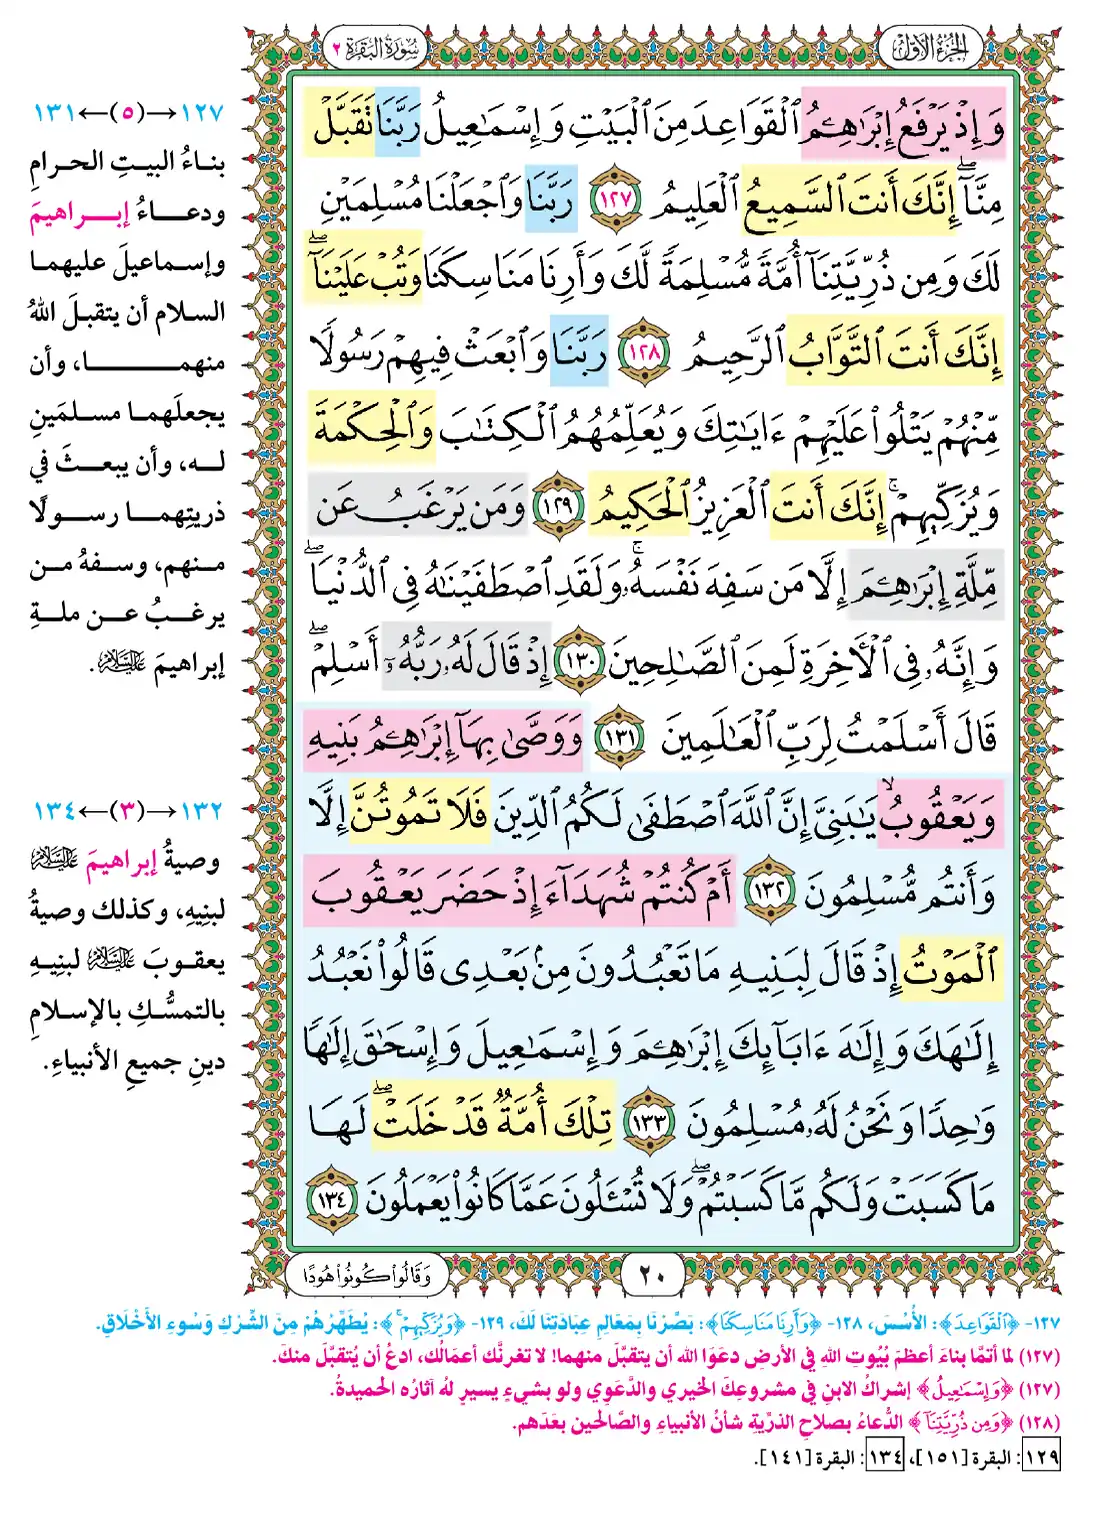 الجزء الأول
سورة البقرة ٢
وَإِذْ يَرْفَعُ إِبْرَٰهِـۧمُ ٱلْقَوَاعِدَ مِنَ ٱلْبَيْتِ وَإِسْمَٰعِيلُ رَبَّنَا تَقَبَّلْ
مِنَّآ ۖ إِنَّكَ أَنتَ ٱلسَّمِيعُ ٱلْعَلِيمُ ١٢٧ رَبَّنَا وَٱجْعَلْنَا مُسْلِمَيْنِ
لَكَ وَمِن ذُرِّيَّتِنَآ أُمَّةً مُّسْلِمَةً لَّكَ وَأَرِنَا مَنَاسِكَنَا وَتُبْ عَلَيْنَآ ۖ
إِنَّكَ أَنتَ ٱلتَّوَّابُ ٱلرَّحِيمُ ١٢٨ رَبَّنَا وَٱبْعَثْ فِيهِمْ رَسُولًا
مِّنْهُمْ يَتْلُوا۟ عَلَيْهِمْ ءَايَٰتِكَ وَيُعَلِّمُهُمُ ٱلْكِتَٰبَ وَٱلْحِكْمَةَ
وَيُزَكِّيهِمْ ۚ إِنَّكَ أَنتَ ٱلْعَزِيزُ ٱلْحَكِيمُ ١٢٩ وَمَن يَرْغَبُ عَن
مِّلَّةِ إِبْرَٰهِـۧمَ إِلَّا مَن سَفِهَ نَفْسَهُۥ ۚ وَلَقَدِ ٱصْطَفَيْنَٰهُ فِى ٱلدُّنْيَا ۖ
وَإِنَّهُۥ فِى ٱلْأَخِرَةِ لَمِنَ ٱلصَّٰلِحِينَ ١٣٠ إِذْ قَالَ لَهُۥ رَبُّهُۥٓ أَسْلِمْ ۖ
قَالَ أَسْلَمْتُ لِرَبِّ ٱلْعَٰلَمِينَ ١٣١ وَوَصَّىٰ بِهَآ إِبْرَٰهِـۧمُ بَنِيهِ
وَيَعْقُوبُ يَٰبَنِىَّ إِنَّ ٱللَّهَ ٱصْطَفَىٰ لَكُمُ ٱلدِّينَ فَلَا تَمُوتُنَّ إِلَّا
وَأَنتُم مُّسْلِمُونَ ١٣٢ أَمْ كُنتُمْ شُهَدَآءَ إِذْ حَضَرَ يَعْقُوبَ
ٱلْمَوْتُ إِذْ قَالَ لِبَنِيهِ مَا تَعْبُدُونَ مِنۢ بَعْدِى قَالُوا۟ نَعْبُدُ
إِلَٰهَكَ وَإِلَٰهَ ءَابَآئِكَ إِبْرَٰهِـۧمَ وَإِسْمَٰعِيلَ وَإِسْحَٰقَ إِلَٰهًا
وَٰحِدًا وَنَحْنُ لَهُۥ مُسْلِمُونَ ١٣٣ تِلْكَ أُمَّةٌ قَدْ خَلَتْ ۖ لَهَا
مَا كَسَبَتْ وَلَكُم مَّا كَسَبْتُمْ ۖ وَلَا تُسْـَٔلُونَ عَمَّا كَانُوا۟ يَعْمَلُونَ ١٣٤
٢٠
وَقَالُوا۟ كُونُوا۟ هُودًا
١٢٧→(٥)←١٣١
بناءُ البيتِ الحرامِ
ودعاءُ إبراهيمَ
وإسماعيلَ عليهما
السلام أن يتقبلَ اللهُ
منهما، وأن
يجعلَهما مسلمَينِ
له، وأن يبعثَ في
ذريتِهما رسولًا
منهم، وسفهُ من
يرغبُ عن ملةِ
إبراهيمَ عليه السلام.
١٣٢→(٣)←١٣٤
وصيةُ إبراهيمَ عليه السلام
لبنِيهِ، وكذلك وصيةُ
يعقوبَ عليه السلام لبنِيهِ
بالتمسُّكِ بالإسلامِ
دينِ جميعِ الأنبياءِ.
١٢٧- ﴿ٱلْقَوَاعِدَ﴾: الأُسُسَ، ١٢٨- ﴿وَأَرِنَا مَنَاسِكَنَا﴾: بَصِّرْنَا بِمَعَالِمِ عِبَادَتِنَا لَكَ، ١٢٩- ﴿وَيُزَكِّيهِمْ ۚ﴾: يُطَهِّرُهُمْ مِنَ الشِّرْكِ وَسُوءِ الأَخْلَاقِ.
(١٢٧) لما أتمَّا بناءَ أعظمَ بُيُوتِ اللهِ في الأرضِ دعَوَا الله أن يتقبَّلَ منهما! لا تغرنَّك أعمَالُك، ادعُ أن يُتقبَّلَ منكَ.
(١٢٧) ﴿وَإِسْمَٰعِيلُ﴾ إشراكُ الابنِ في مشروعِكَ الخيري والدَّعَوِي ولو بشيءٍ يسيرٍ لهُ آثارُه الحميدةُ.
(١٢٨) ﴿وَمِن ذُرِّيَّتِنَآ﴾ الدُّعاءُ بصلاحِ الذرِّيةِ شأنُ الأنبياءِ والصَّالحين بعدَهم.
١٢٩: البقرة [١٥١]، ١٣٤: البقرة [١٤١].